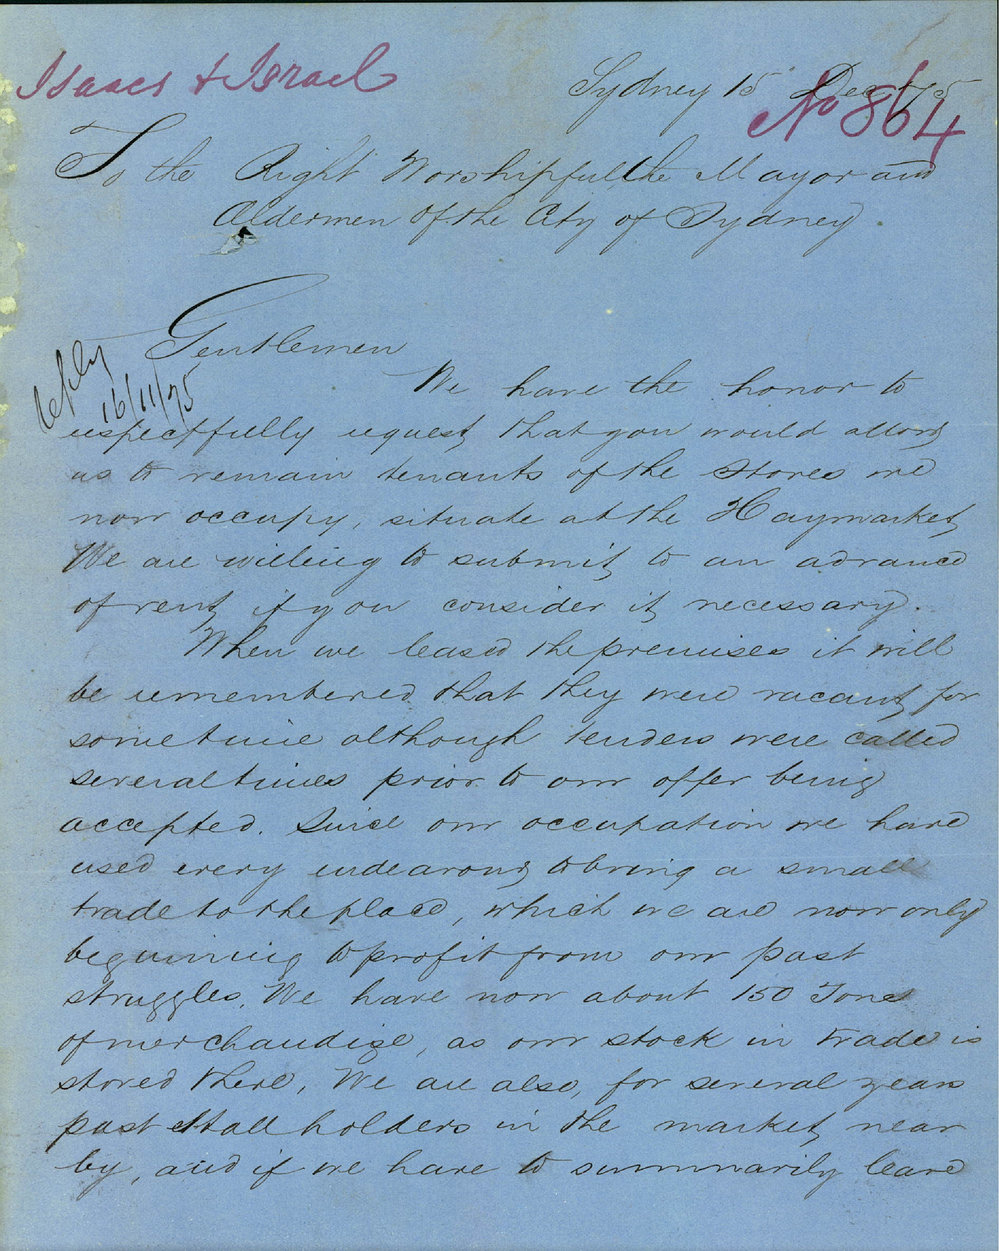 Isaacs & Israel
Sydney 15 Dec 75
No 864
To the Right Worshipful, the Mayor and
Aldermen of the City of Sydney.
Gentlemen
reply
16/11/75
We have the honor to
respectfully request that you would allow
us to remain tenants of the stores we
now occupy, situate at the Haymarket,
We are willing to submit to an advance
of rent, if you consider it necessary.
When we leased the premises it will
be remembered that they were vacant for
sometime although tenders were called
several times prior to our offer being
accepted. Since our occupation we have
used every endeavour to bring a small
trade to the place, which we are now only
beginning to profit from our past
struggles. We have now about 150 Tons
of merchandise, as our stock in trade is
stored there. We are also, for several years
past Stall holders in the market, near
by, and if we have to summarily leave